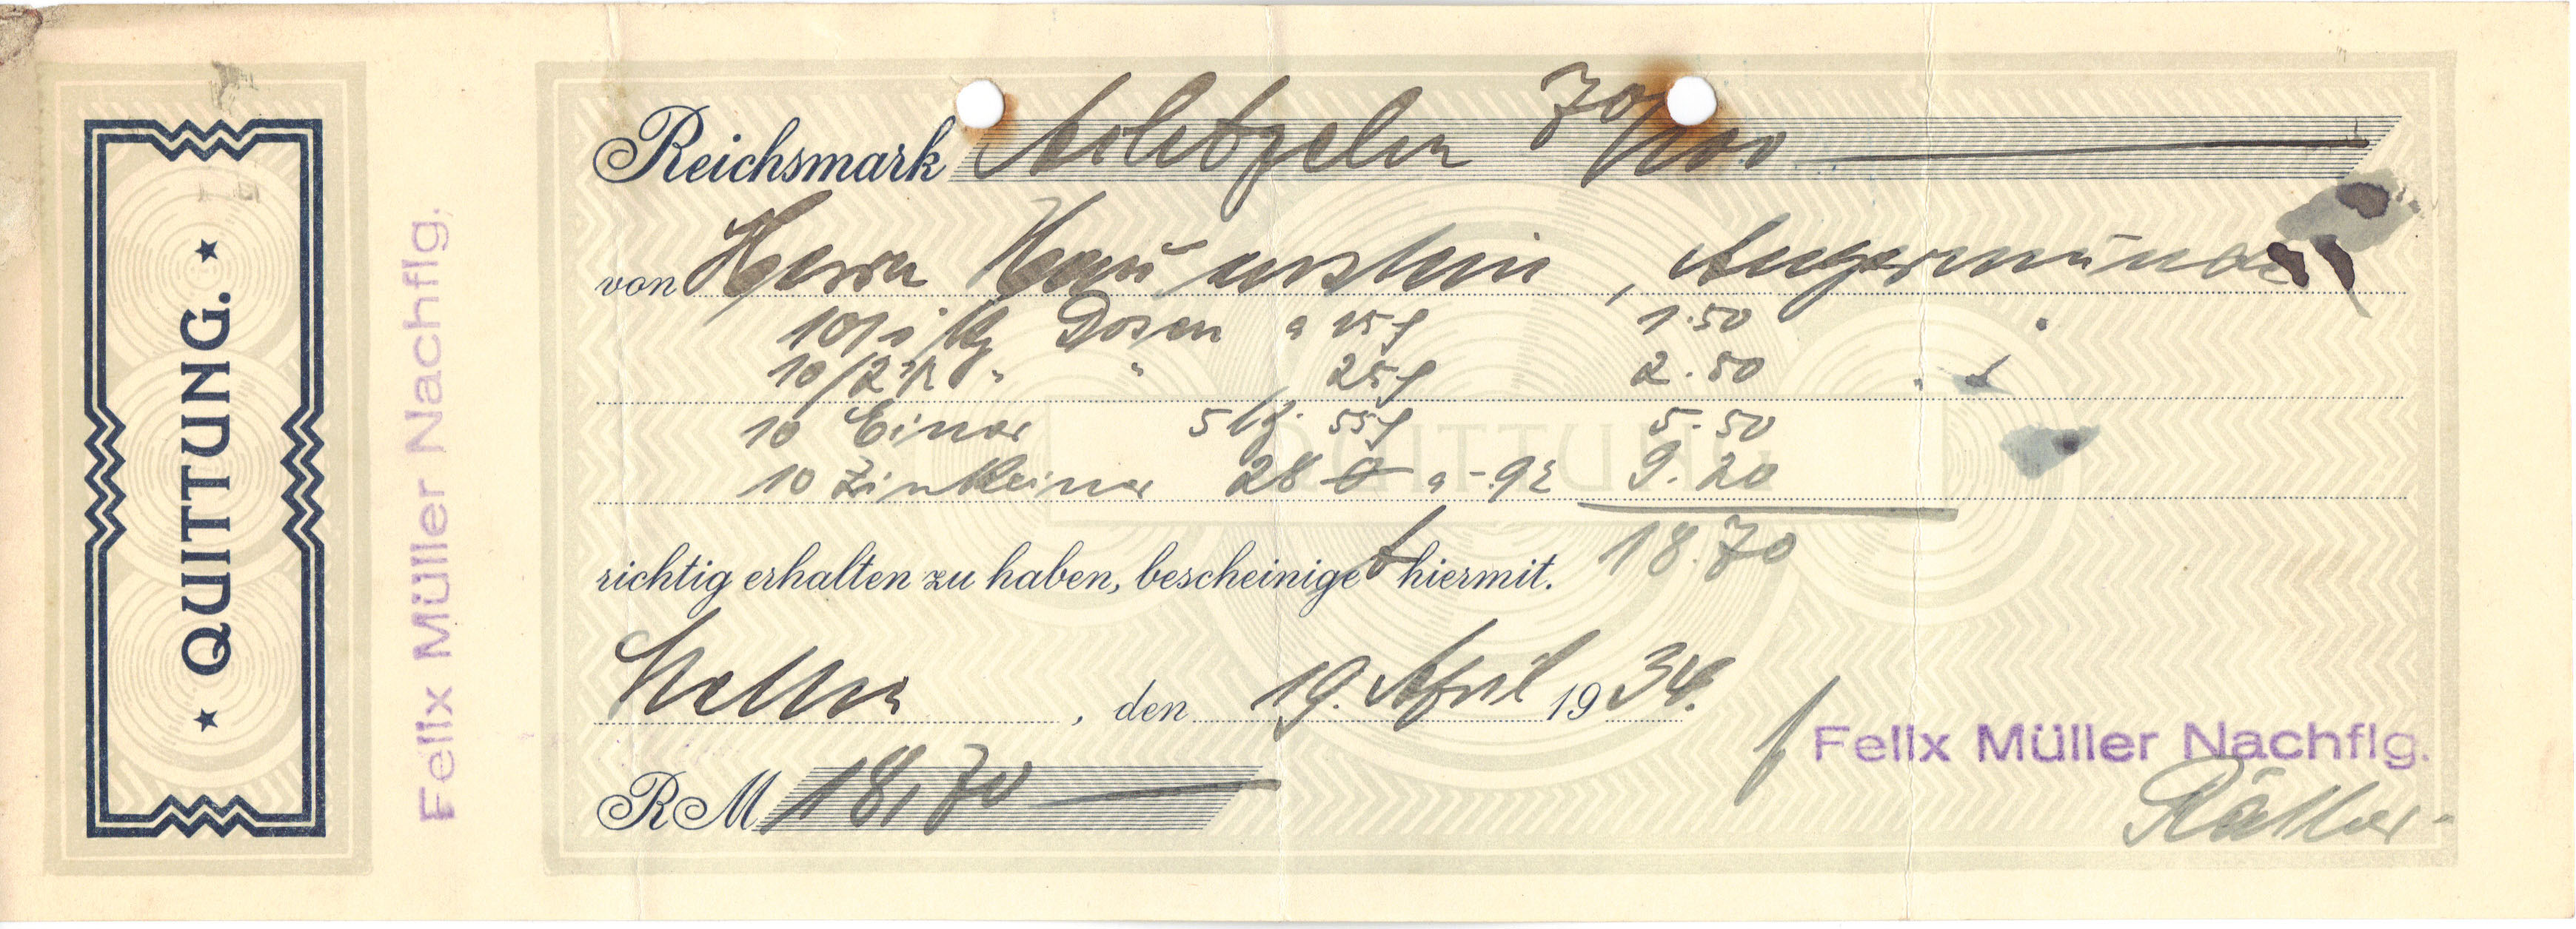 ★ QUITTUNG. ★
Felix Müller Nachflg.
Reichsmark Achtzehn 70/100
von Herrn , Angermünde
10/1 kg Dosen a 15 ₰ 1.50
10/2 " " 25 ₰ 2.50
10 Eimer 5 kg. 55 ₰ 5.50
10 Zinkeimer 28 a -.92 9.20
richtig erhalten zu haben, bescheinigt hiermit. 18.70
, den 19. April 1934.
RM 18,70
Felix Müller Nachflg.